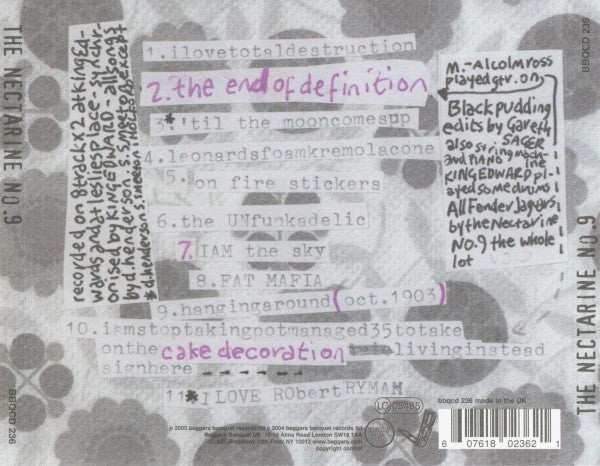 THE NECTARINE NO.9
BBQCD 236
recorded on 8track x2 at KingEd-
wards and at leslies place- synchr-
onised by KINGEDWARD - all songs
by d.henderson
1.ilovetotaldestruction
2.the end of definition
3.*'til the mooncomesup
4.leonardsfoamkremolacone
5. on fire stickers
6.the UNfunkadelic
7.IAM the sky
8.FAT MAFIA
9.hangingaround(oct.1903)
10.iamstoptakingpotmanaged35totake
onthe cake decoration livinginstead
signhere - - - - - -
11*I LOVE RObert RYMAM
M.-Alcolmross
played gtr. on
Black pudding
edits by Gareth
SAGER
also string mach-
ine
and PIANO
KINGEDWARD pl-
ayed some drums
All Fender Jagers
by the Nectarine
NO.9 the whole
lot
BBQCD 236
THE NECTARINE NO.9
LC 05485
bbqcd 236 made in the UK
6 07618 02362 1
℗ 2003 beggars banquet records ltd © 2004 beggars banquet records ltd
Beggars Banquet UK, 17-19 Alma Road London SW18 1AA
US, 625 Broadway, 12th Floor, NY 10012 www.beggars.com
copyright control